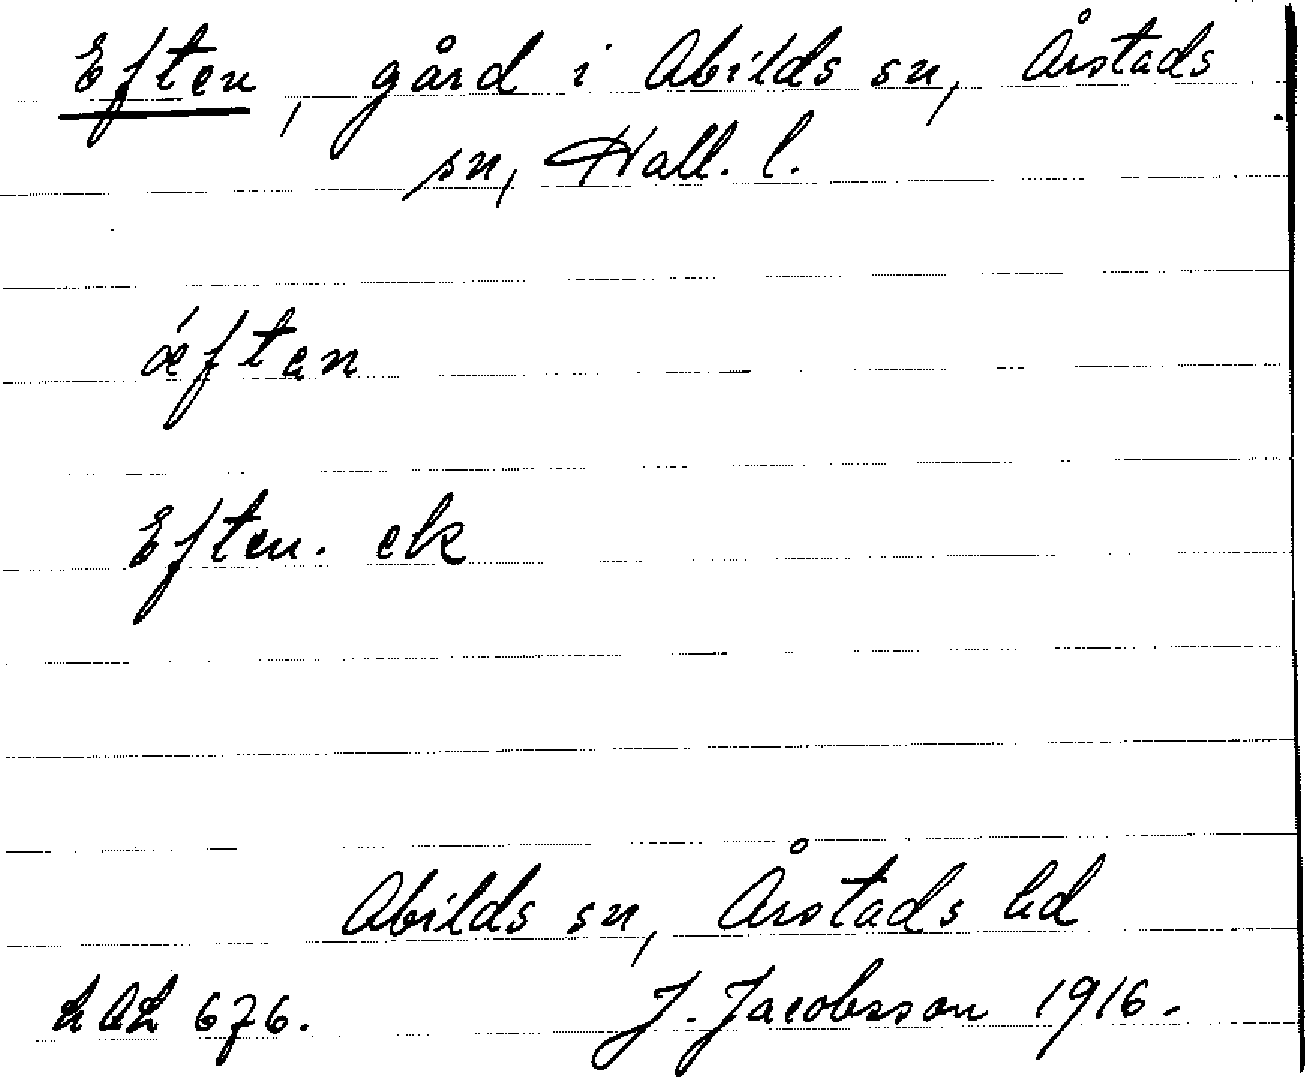 Eften, gård i Abilds sn, Årstads
sn, Hall. l.
ǽftan
Eften. ek
Abilds sn, Årstads hd
LAL 676. J. Jacobsson 1916.